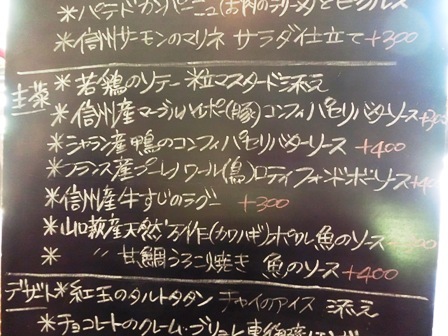 ＊パテドカンパーニュ(お肉のテリーヌ)とピクルス
＊信州サーモンのマリネ サラダ仕立て +300
主菜 ＊若鶏のソテー 粒マスタード添え
＊信州産マーブルハイポー(豚)コンフィパセリバターソース +300
＊シャラン産鴨のコンフィパセリバターソース +400
＊フランス産 (鳥)ロティフォンドボーソース +40
＊信州産牛すじのラグー +300
＊山口萩産天然 (カワハギ)ポワレ魚のソース 00
＊ 〃 甘鯛うろこ焼き 魚のソース +400
デザート＊紅玉のタルトタタン チャイのアイス 添え
＊チョコレートのクレーム・ブリュレ